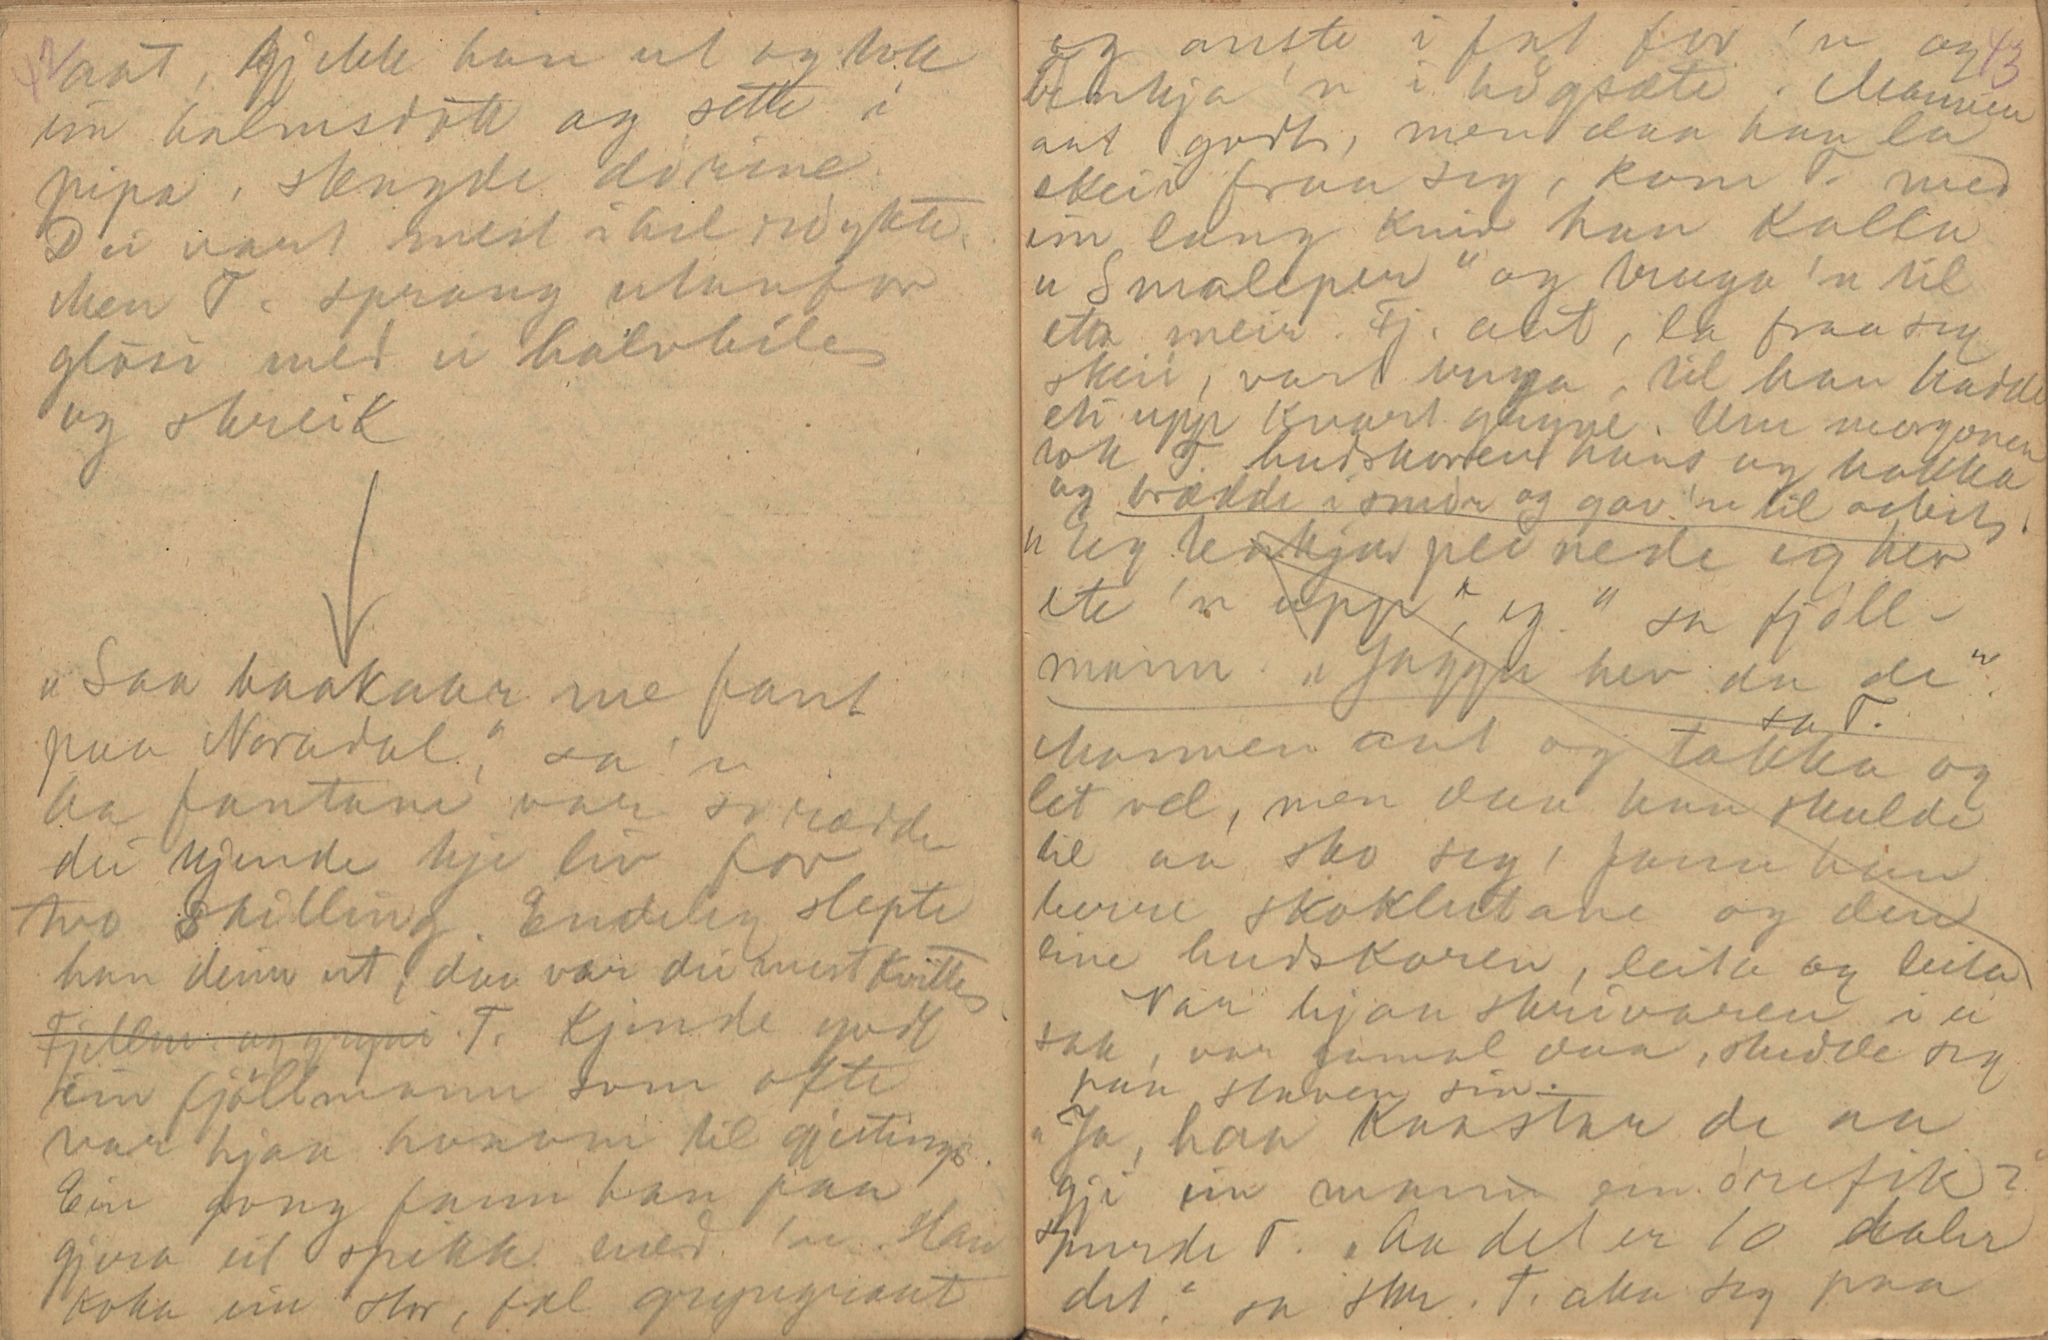 42
aat, gjekk han ut og tok
ein halmsdott og sette i
pipa, stengde dörine.
Dei vart mest ihel röykte.
Men T. sprang utanfor
glösi med ei halvbile
og skreik
"Saa baakaar me fant
paa Noradal," sa 'n
Aa fantane var so rædde
dei kjende kje liv for
tvo skilling. Endeleg slepte
han deim ut, daa var dei mest kvitte
T. kjende godt
ein fjöllmann som ofte
var hjaa honom til gjestings.
Ein gong fann han paa
gjera eit spikk med 'n. Han
koka ein stor, fal grjongraut
43
og auste i fat for 'n og
benkja 'n i högsæte. Mannen
aat godt, men daa han la
skeii fraa seg, kom T. med
ein lang kniv han kalla
"Smaleper" og truga 'n til
eta meir. Fj. aat, la fraa seg
skeii, vart truga, til han hadde
eti upp kvart grjone. Um morgonen
tok T. hudskoren hans og hakka
og brædde i smör og gav 'n til
"Eg hev
ete 'n upp, eg" sa fjöll-
mann. "Jaggu hev du de".
sa T.
Mannen aat og takka og
let vel, men daa han skulde
til aa sko seg, fann han
berre skoklutane og den
eine hudskoren, leita og leita
Var hjaa skrivaren i ei
sak, var gamal daa, studde seg
paa staven sin.
"Ja, haa kaastar de aa
gje ein mann ein örefik?"
spurde T. "Aa det er 10 dalar
det." sa skr. T. aka seg paa